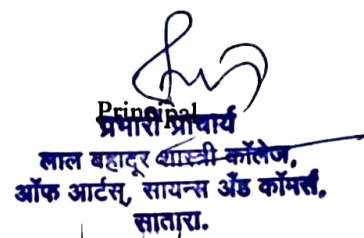 Principal
प्रभारी प्राचार्य
लाल बहादूर शास्त्री कॉलेज,
ऑफ आर्टस्, सायन्स अँड कॉमर्स,
सातारा.